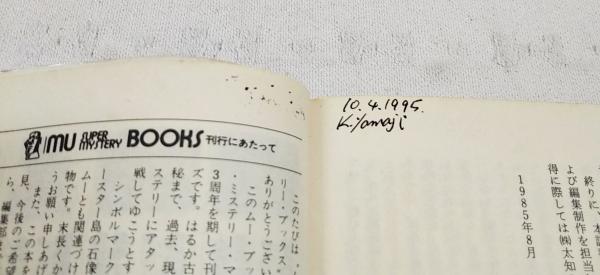 10.4.1995.
K.Yamaji
MU SUPER MYSTERY BOOKS 刊行にあたって
このたびは、
リー・ブックス
ありがとうござい
このムー・ブッ
・ミステリー・マ
3周年を期して刊
ズです。はるか古
秘まで、過去、現
ステリーにアタッ
戦してゆこうとす
シンボルマーク
ースター島の石像
ムーとも関連づけ
物です。末長くか
うお願い申しあげ
また、この本を
見、今後のご希望
ら、編集部
終りに、本
よび編集制作を担当
得に際しては㈱太知
1985年8月